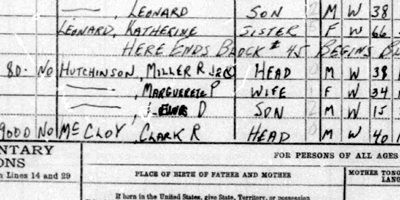 ——, LEONARD SON 2 M W 38
LEONARD, KATHERINE SISTER F W 66
HERE ENDS BLOCK # 45 BEGINS BL
80- No HUTCHINSON, MILLER R HEAD M W 38
——, MARGUERETE P WIFE 1 F W 34
——, D SON 2 M W 15
9000 No McCLOY, CLARK R HEAD 0 M W 40
FOR PERSONS OF ALL AGES
ENTARY
ONS
n Lines 14 and 29
PLACE OF BIRTH OF FATHER AND MOTHER
MOTHER TONG
LANG
If born in the United States, give State, Territory, or possession